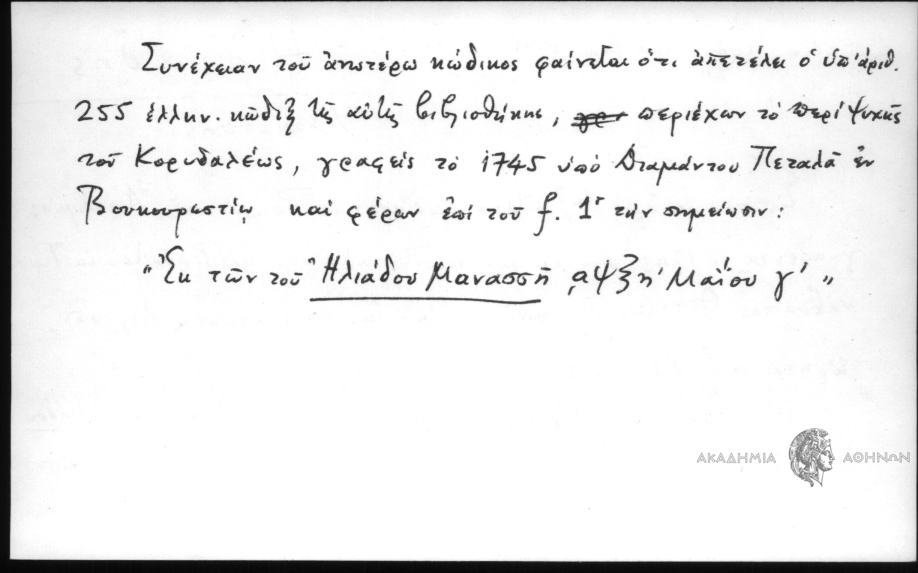 Συνέχειαν τοῦ ἀνωτέρω κώδικος φαίνεται ὅτι ἀπετέλει ὁ ὑπ' ἀριθ.
255 ἑλλην. κῶδιξ τῆς αὐτῆς βιβλιοθήκης, περιέχων τὸ περὶ ψυχῆς
τοῦ Κορυδαλέως, γραφεὶς τὸ 1745 ὑπὸ Διαμάντου Πεταλᾶ ἐν
Βουκουρεστίῳ καὶ φέρων ἐπὶ τοῦ f. 1r τὴν σημείωσιν:
"Ἐκ τῶν τοῦ Ἠλιάδου Μανασσῆ ͵αψξη' Μαΐου γ'"
ΑΚΑΔΗΜΙΑ ΑΘΗΝΩΝ